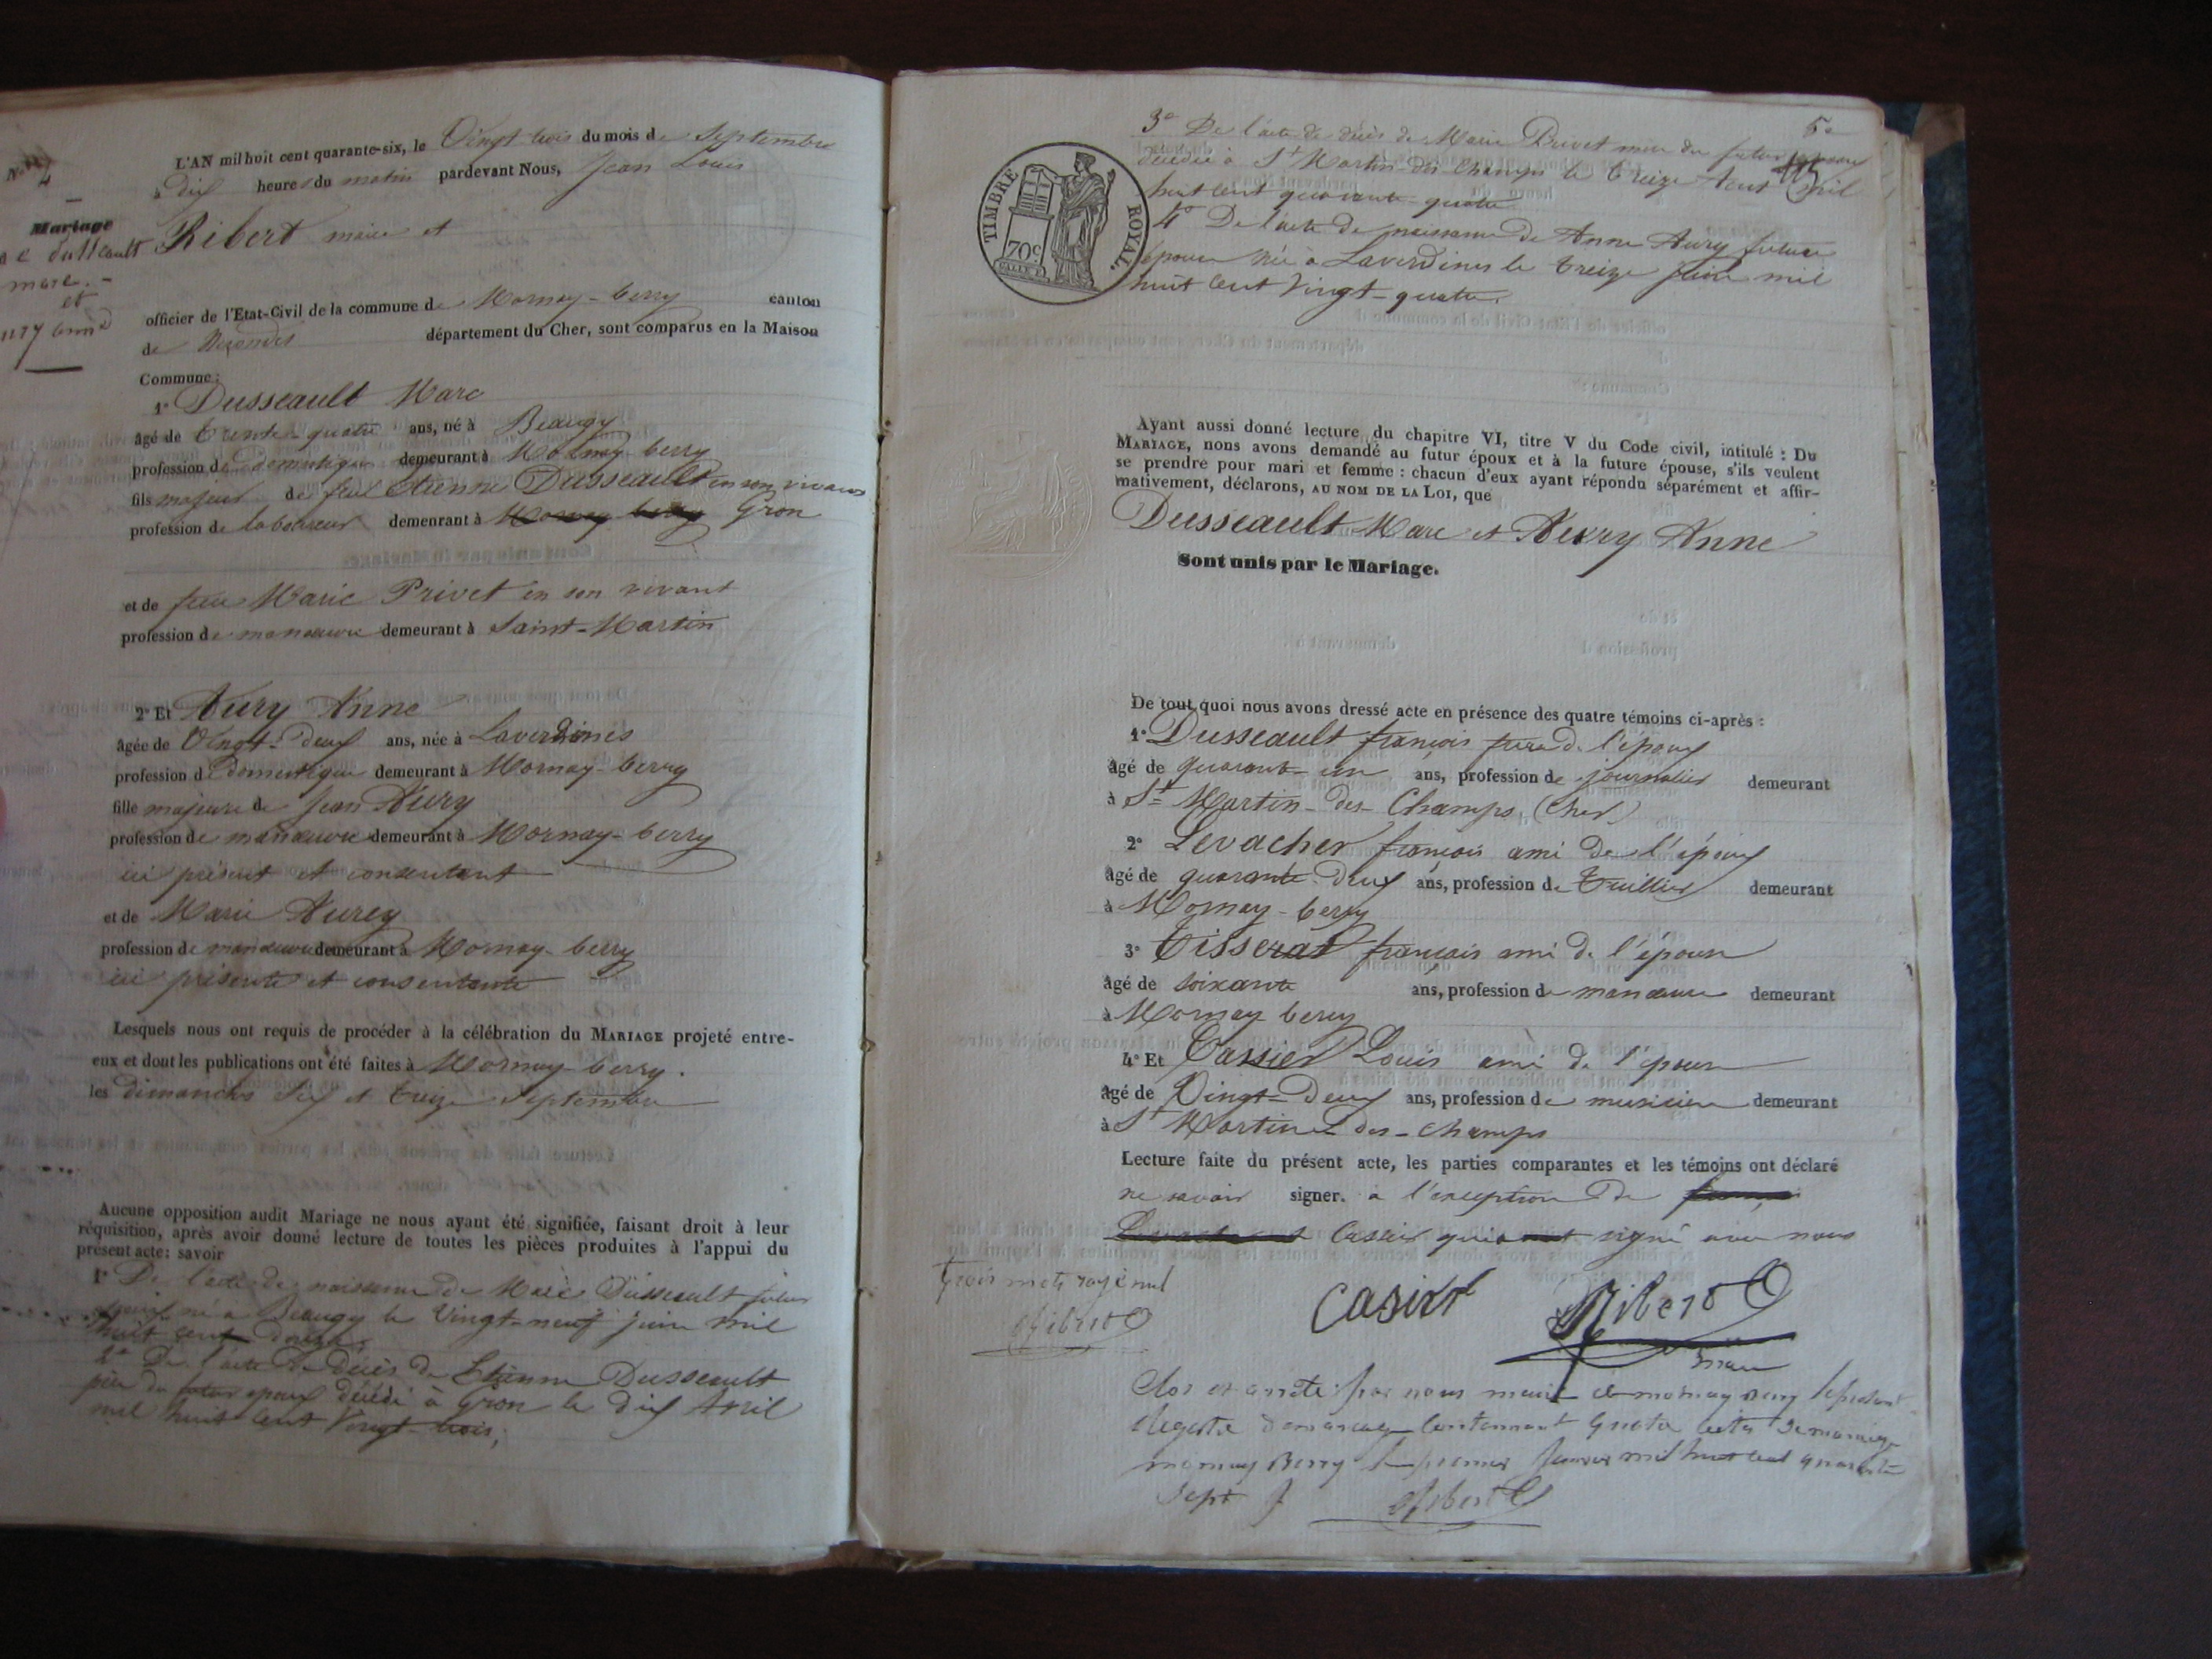 4
Mariage
Dusseault
marc. -
et
L'AN mil huit cent quarante-six, le Vingt trois du mois de Septembre
à Dix heures du matin pardevant Nous, Jean Louis
Ribert maire et
officier de l'État-Civil de la commune de Mornay-berry canton
de Nérondes département du Cher, sont comparus en la Maison
Commune :
1° Dusseault Marc
âgé de trente-quatre ans, né à Beaugy
profession de domestique demeurant à Mornay-berry
fils majeur de feu Etienne Dusseault en son vivant
profession de laboureur demeurant à Mornay berry Gron
et de feue Marie Privet en son vivant
profession de manœuvre demeurant à Saint-Martin
2° Et Aury Anne
âgée de Vingt-Deux ans, née à Laverdines
profession de domestique demeurant à Mornay-berry
fille majeure de Jean Aury
profession de manœuvre demeurant à Mornay-berry
ici présent et consentant
et de Marie Aurey
profession de manœuvre demeurant à Mornay-berry
ici présente et consentante
Lesquels nous ont requis de procéder à la célébration du MARIAGE projeté entre-
eux et dont les publications ont été faites à Mornay-berry.
les dimanches Six et treize Septembre
Aucune opposition audit Mariage ne nous ayant été signifiée, faisant droit à leur
réquisition, après avoir donné lecture de toutes les pièces produites à l'appui du
présent acte : savoir
1° De l'acte de naissance de Marc Dusseault futur
époux né à Beaugy le Vingt-neuf juin mil
huit cent douze;
2° De l'acte de décès de Etienne Dusseault
père du futur époux décédé à Gron le dix Avril
mil huit cent Vingt-trois;
5e
3° De l'acte de décès de Marie Privet mère du futur époux
décédée à St Martin-des-Champs le treize Aout mil
huit cent quarante-quatre
4° De l'acte de naissance de Anne Aury future
épouse née à Laverdines le treize juin mil
huit cent Vingt-quatre.
TIMBRE ROYAL.
70c
Ayant aussi donné lecture du chapitre VI, titre V du Code civil, intitulé : DU
MARIAGE, nous avons demandé au futur époux et à la future épouse, s'ils veulent
se prendre pour mari et femme : chacun d'eux ayant répondu séparément et affir-
mativement, déclarons, AU NOM DE LA LOI, que
Dusseault Marc et Aurry Anne
Sont unis par le Mariage.
De tout quoi nous avons dressé acte en présence des quatre témoins ci-après :
1° Dusseault françois frère de l'époux
âgé de quarante-un ans, profession de journalier demeurant
à St Martin-des-Champs (Cher)
2° Levacher françois ami de l'époux
âgé de quarante-deux ans, profession de tuillier demeurant
à Mornay-berry
3° Tisserat françois ami de l'épouse
âgé de soixante ans, profession de manœuvre demeurant
à Mornay berry
4° Et Cassier Louis ami de l'épouse
âgé de Vingt-Deux ans, profession de musicien demeurant
à St Martin-des-champs
Lecture faite du présent acte, les parties comparantes et les témoins ont déclaré
ne savoir signer. à l'exception de
Cassier qui a signé avec nous
trois mots rayé nul
Ribert
Casier Ribert
maire
Clos et arreté par nous maire de mornay Berry le présent
Registre de mariage contenant quatre actes de mariage
mornay Berry le premier Janvier mil huit cent quarante
Sept Ribert